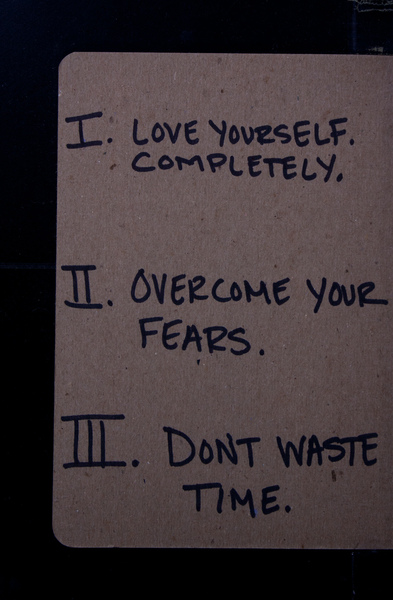 I. LOVE YOURSELF.
COMPLETELY.
II. OVERCOME YOUR
FEARS.
III. DONT WASTE
TIME.